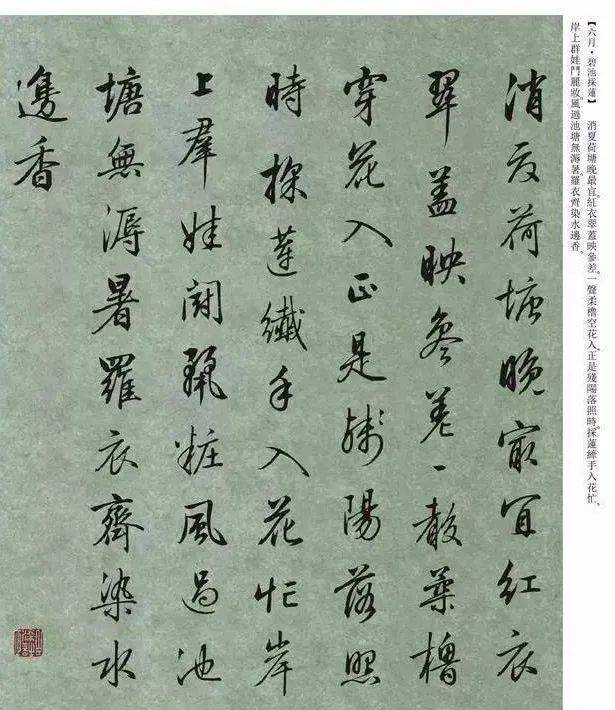 【六月·碧池採蓮】 消夏荷塘晚最宜，紅衣翠蓋映參差。一聲柔櫓空花入，正是殘陽落照時。採蓮縴手入花忙，
岸上群娃鬥麗妝。風過池塘無溽暑，羅衣齊染水邊香。
消夏荷塘晚最宜紅衣
翠蓋映參差一聲柔櫓
穿花入正是殘陽落照
時採蓮纖手入花忙岸
上羣娃鬭麗粧風過池
塘無溽暑羅衣齊染水
邊香